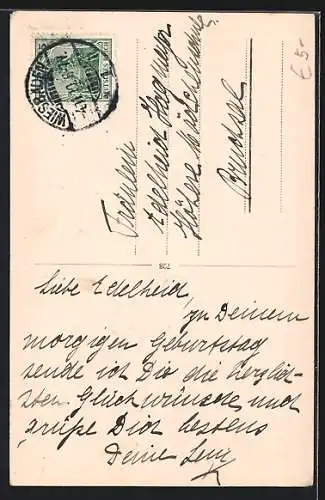 € 5-
WIESBADEN
Fräulein
Edelheid
Höhere
Bruchsal
728
Liebe Edelheid,
zu Deinem
morgigen Geburtstag
sende ich Dir die herzlich-
sten Glückwünsche und
grüße Dich bestens
Deine